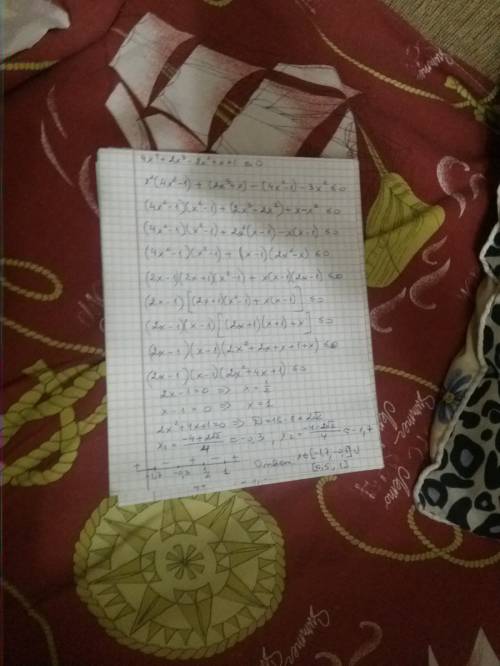 4x⁴+2x³-8x²+x+1 ≤ 0
x²(4x²-1) + (2x³+x) - (4x²-1) - 3x² ≤ 0
(4x²-1)(x²-1) + (2x³-2x²) + x-x² ≤ 0
(4x²-1)(x²-1) + 2x²(x-1) - x(x-1) ≤ 0
(4x²-1)(x²-1) + (x-1)(2x²-x) ≤ 0
(2x-1)(2x+1)(x²-1) + x(x-1)(2x-1) ≤ 0
(2x-1)[(2x+1)(x²-1)+x(x-1)] ≤ 0
(2x-1)(x-1)[(2x+1)(x+1)+x] ≤ 0
(2x-1)(x-1)(2x²+2x+x+1+x) ≤ 0
(2x-1)(x-1)(2x²+4x+1) ≤ 0
2x-1=0 ⇒ x=½
x-1=0 ⇒ x=1
2x²+4x+1=0 ⇒
x₁= (-4+2√2)/4 ≈ -0,3 ; x₂= (-4-2√2)/4 ≈ -1,7
+ - + - +
-1,7 -0,3 ½ 1
[0,5, 1]
Nemo